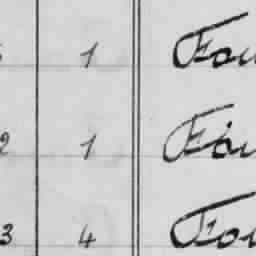 1 Fou
2 1 Fou
3 4 Fou